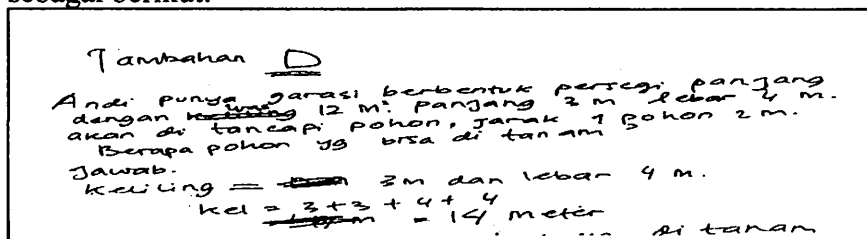 Tambahan D
Andi punya garasi berbentuk persegi panjang
dengan luas 12 m². panjang 3 m lebar 4 m.
akan di tancapi pohon, jarak 1 pohon 2 m.
Berapa pohon yg bisa di tanam?
Jawab.
Keliling = 3m dan lebar 4 m.
kel = 3 + 3 + 4 + 4
= 14 meter
di tanam